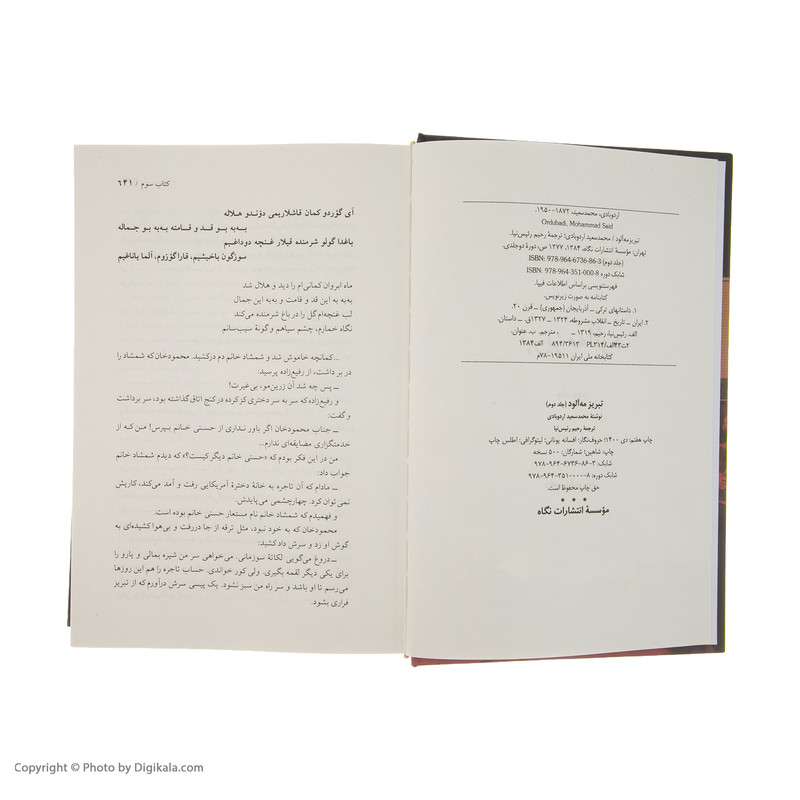 اردوبادی، محمدسعید، ۱۸۷۲-۱۹۵۰.
Ordubadi, Mohammad Said
تبریز مه‌آلود / محمدسعید اردوبادی؛ ترجمهٔ رحیم رئیس‌نیا.
تهران: مؤسسهٔ انتشارات نگاه، ۱۳۸۴، ۱۲۷۷ ص، دورهٔ دوجلدی.
(جلد دوم) ISBN: 978-964-6736-86-3
شابک دوره ISBN: 978-964-351-000-8
فهرستنویسی براساس اطلاعات فیپا.
کتابنامه به صورت زیرنویس.
۱. داستانهای ترکی ــ آذربایجان (جمهوری) ــ قرن ۲۰.
۲. ایران ــ تاریخ ــ انقلاب مشروطه، ۱۳۲۴ ــ ۱۳۲۷ق. ــ داستان.
الف. رئیس‌نیا، رحیم، ۱۳۱۹ ــ ، مترجم. ب. عنوان.
۲ت۴۳الف/PL۳۱۴ ۸۹۴/۳۶۱۳ الف۱۳۸۴
کتابخانه ملی ایران ۱۹۵۱۱-۷۸م
تبریز مه‌آلود (جلد دوم)
نوشتهٔ محمدسعید اردوبادی
ترجمهٔ رحیم رئیس‌نیا
چاپ هفتم: دی ۱۴۰۰؛ حروف‌نگار: افسانه یونانی؛ لیتوگرافی: اطلس چاپ
چاپ: شاهین؛ شمارگان: ۵۰۰ نسخه
شابک: ۳-۸۶-۶۷۳۶-۹۶۴-۹۷۸
شابک دوره: ۸-۰۰۰-۳۵۱-۹۶۴-۹۷۸
حق چاپ محفوظ است.
* * *
مؤسسهٔ انتشارات نگاه
کتاب سوم / ۶۴۱
آی گؤردو کمان قاشلاریمی دؤندو هلاله
به‌به بو قد و قامته به‌به بو جماله
باغدا گولو شرمنده قیلار غنچه دوداغیم
سوزگون باخیشیم، قاراگؤزوم، آلما یاناغیم
ماه ابروان کمانی‌ام را دید و هلال شد
به‌به به این قد و قامت و به‌به این جمال
لب غنچه‌ام گل را در باغ شرمنده می‌کند
نگاه خمارم، چشم سیاهم و گونهٔ سیب‌سانم
...کمانچه خاموش شد و شمشاد خانم دم درکشید. محمودخان که شمشاد را
در بر داشت، از رفیع‌زاده پرسید:
ــ پس چه شد آن زرین‌مو، بی‌غیرت!
و رفیع‌زاده که سر به سر دختری کزکرده در کنج اتاق گذاشته بود، سر برداشت
و گفت:
ــ جناب محمودخان اگر باور نداری از حسنی خانم بپرس! من که از
خدمتگزاری مضایقه‌ای ندارم...
من در این فکر بودم که «حسنی خانم دیگر کیست؟» که دیدم شمشاد خانم
جواب داد:
ــ مادام که آن تاجره به خانهٔ دخترهٔ آمریکایی رفت و آمد می‌کند، کاریش
نمی‌توان کرد. چهارچشمی می‌پایدش.
و فهمیدم که شمشاد خانم نام مستعار حسنی خانم بوده است.
محمودخان که به خود نبود، مثل ترقه از جا دررفت و بی‌هوا کشیده‌ای به
گوش او زد و سرش داد کشید:
ــ دروغ می‌گویی لکاتهٔ سوزمانی. می‌خواهی سر من شیره بمالی و یارو را
برای یکی دیگر لقمه بگیری. ولی کور خواندی. حساب تاجره را هم این روزها
می‌رسم تا او باشد و سر راه من سبز نشود. یک پیسی سرش درآورم که از تبریز
فراری بشود.
Copyright © Photo by Digikala.com